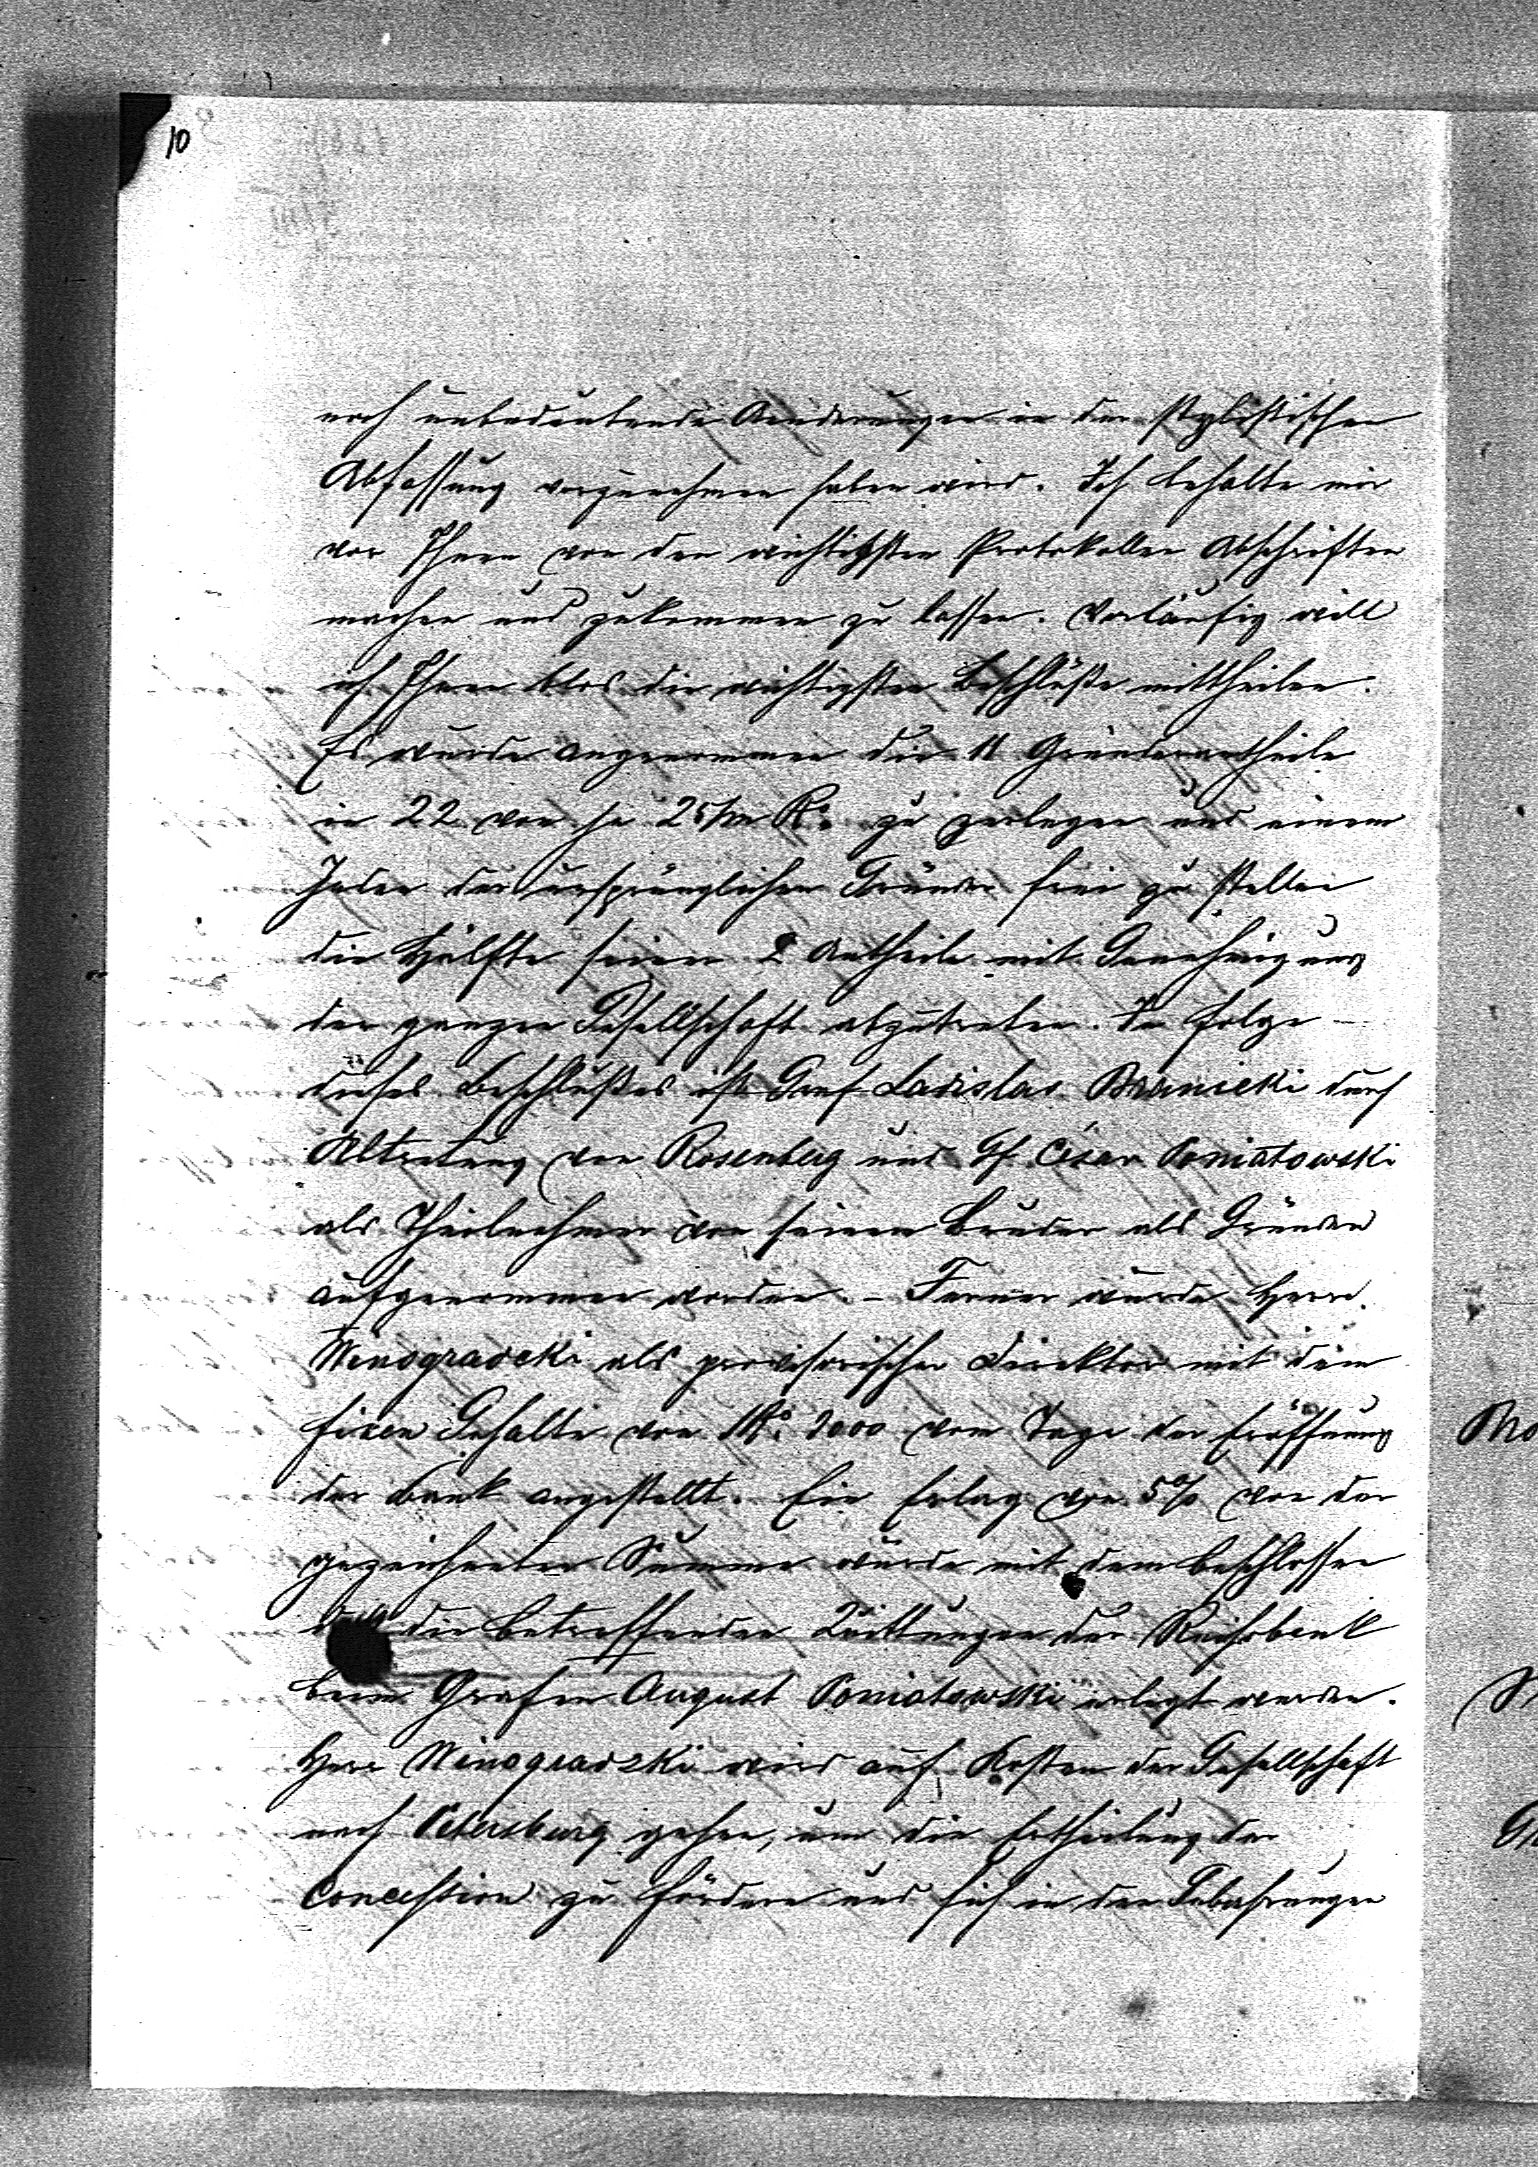 10
noch unbedeutende Aenderungen in der stylistischen
Abfassung vorzunehmen haben wird. Ich behalte mir
vor Ihnen von den wichtigsten Protokollen Abschriften
machen und zukommen zu lassen. Vorläufig will
ich Ihnen blos die wichtigsten Beschlüße mittheilen.
Es wurde angenommen die 11 Gründerantheile
in 22 von je 25/m R: zu zerlegen und einem
Jeden der ursprünglichen Gründer frei zu stellen
die Hälfte seiner 2 Antheile mit Genehmigung
der ganzen Gesellschaft abzutreten. In Folge
dieses Beschlußes ist Graf Ladislas Branicki durch
Abtretung von Rosenberg und Gf. César Poniatowski
als Theilnehmer von seinem Bruder als Gründer
aufgenommen worden. – Ferner wurde Herr
Winogradcki als provisorischer Direktor mit dem
fixen Gehalte von R: 2000 vom Tage der Eröffnung
der Bank angestellt. Ein Erlag von 5% von der
gezeichneten Summe wurde mit dem beschlossen
daß die betreffenden Quittungen der Reichsbank
beim Grafen August Poniatowski erlegt werden.
Herr Winogradzki wird auf Kosten der Gesellschaft
nach Petersburg gehen, um die Ertheilung der
Concession zu fördern und sich in den Gebahrungen